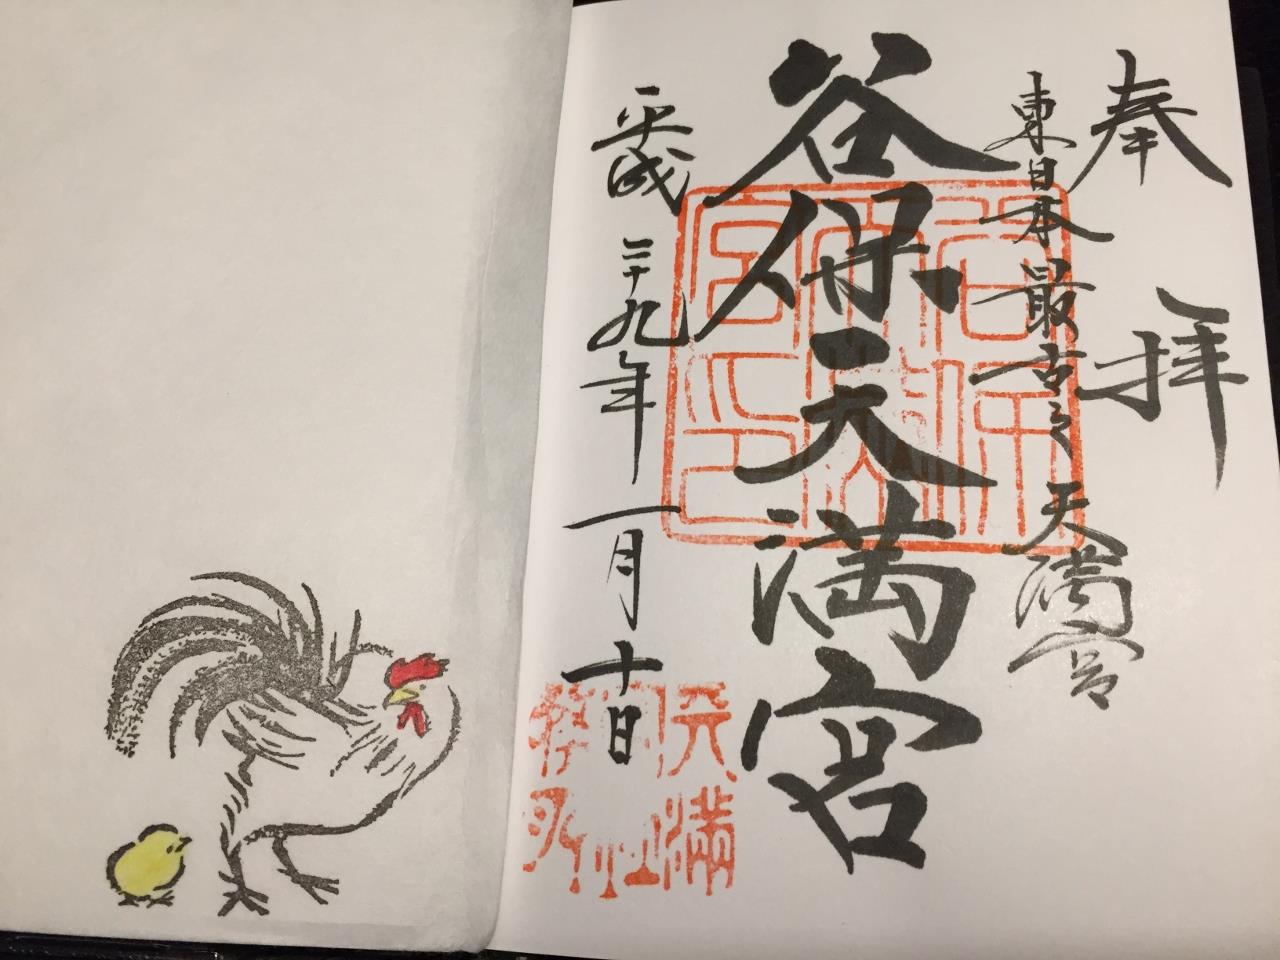 奉拝
東日本最古之天満宮
谷保天満宮
平成二十九年一月十日